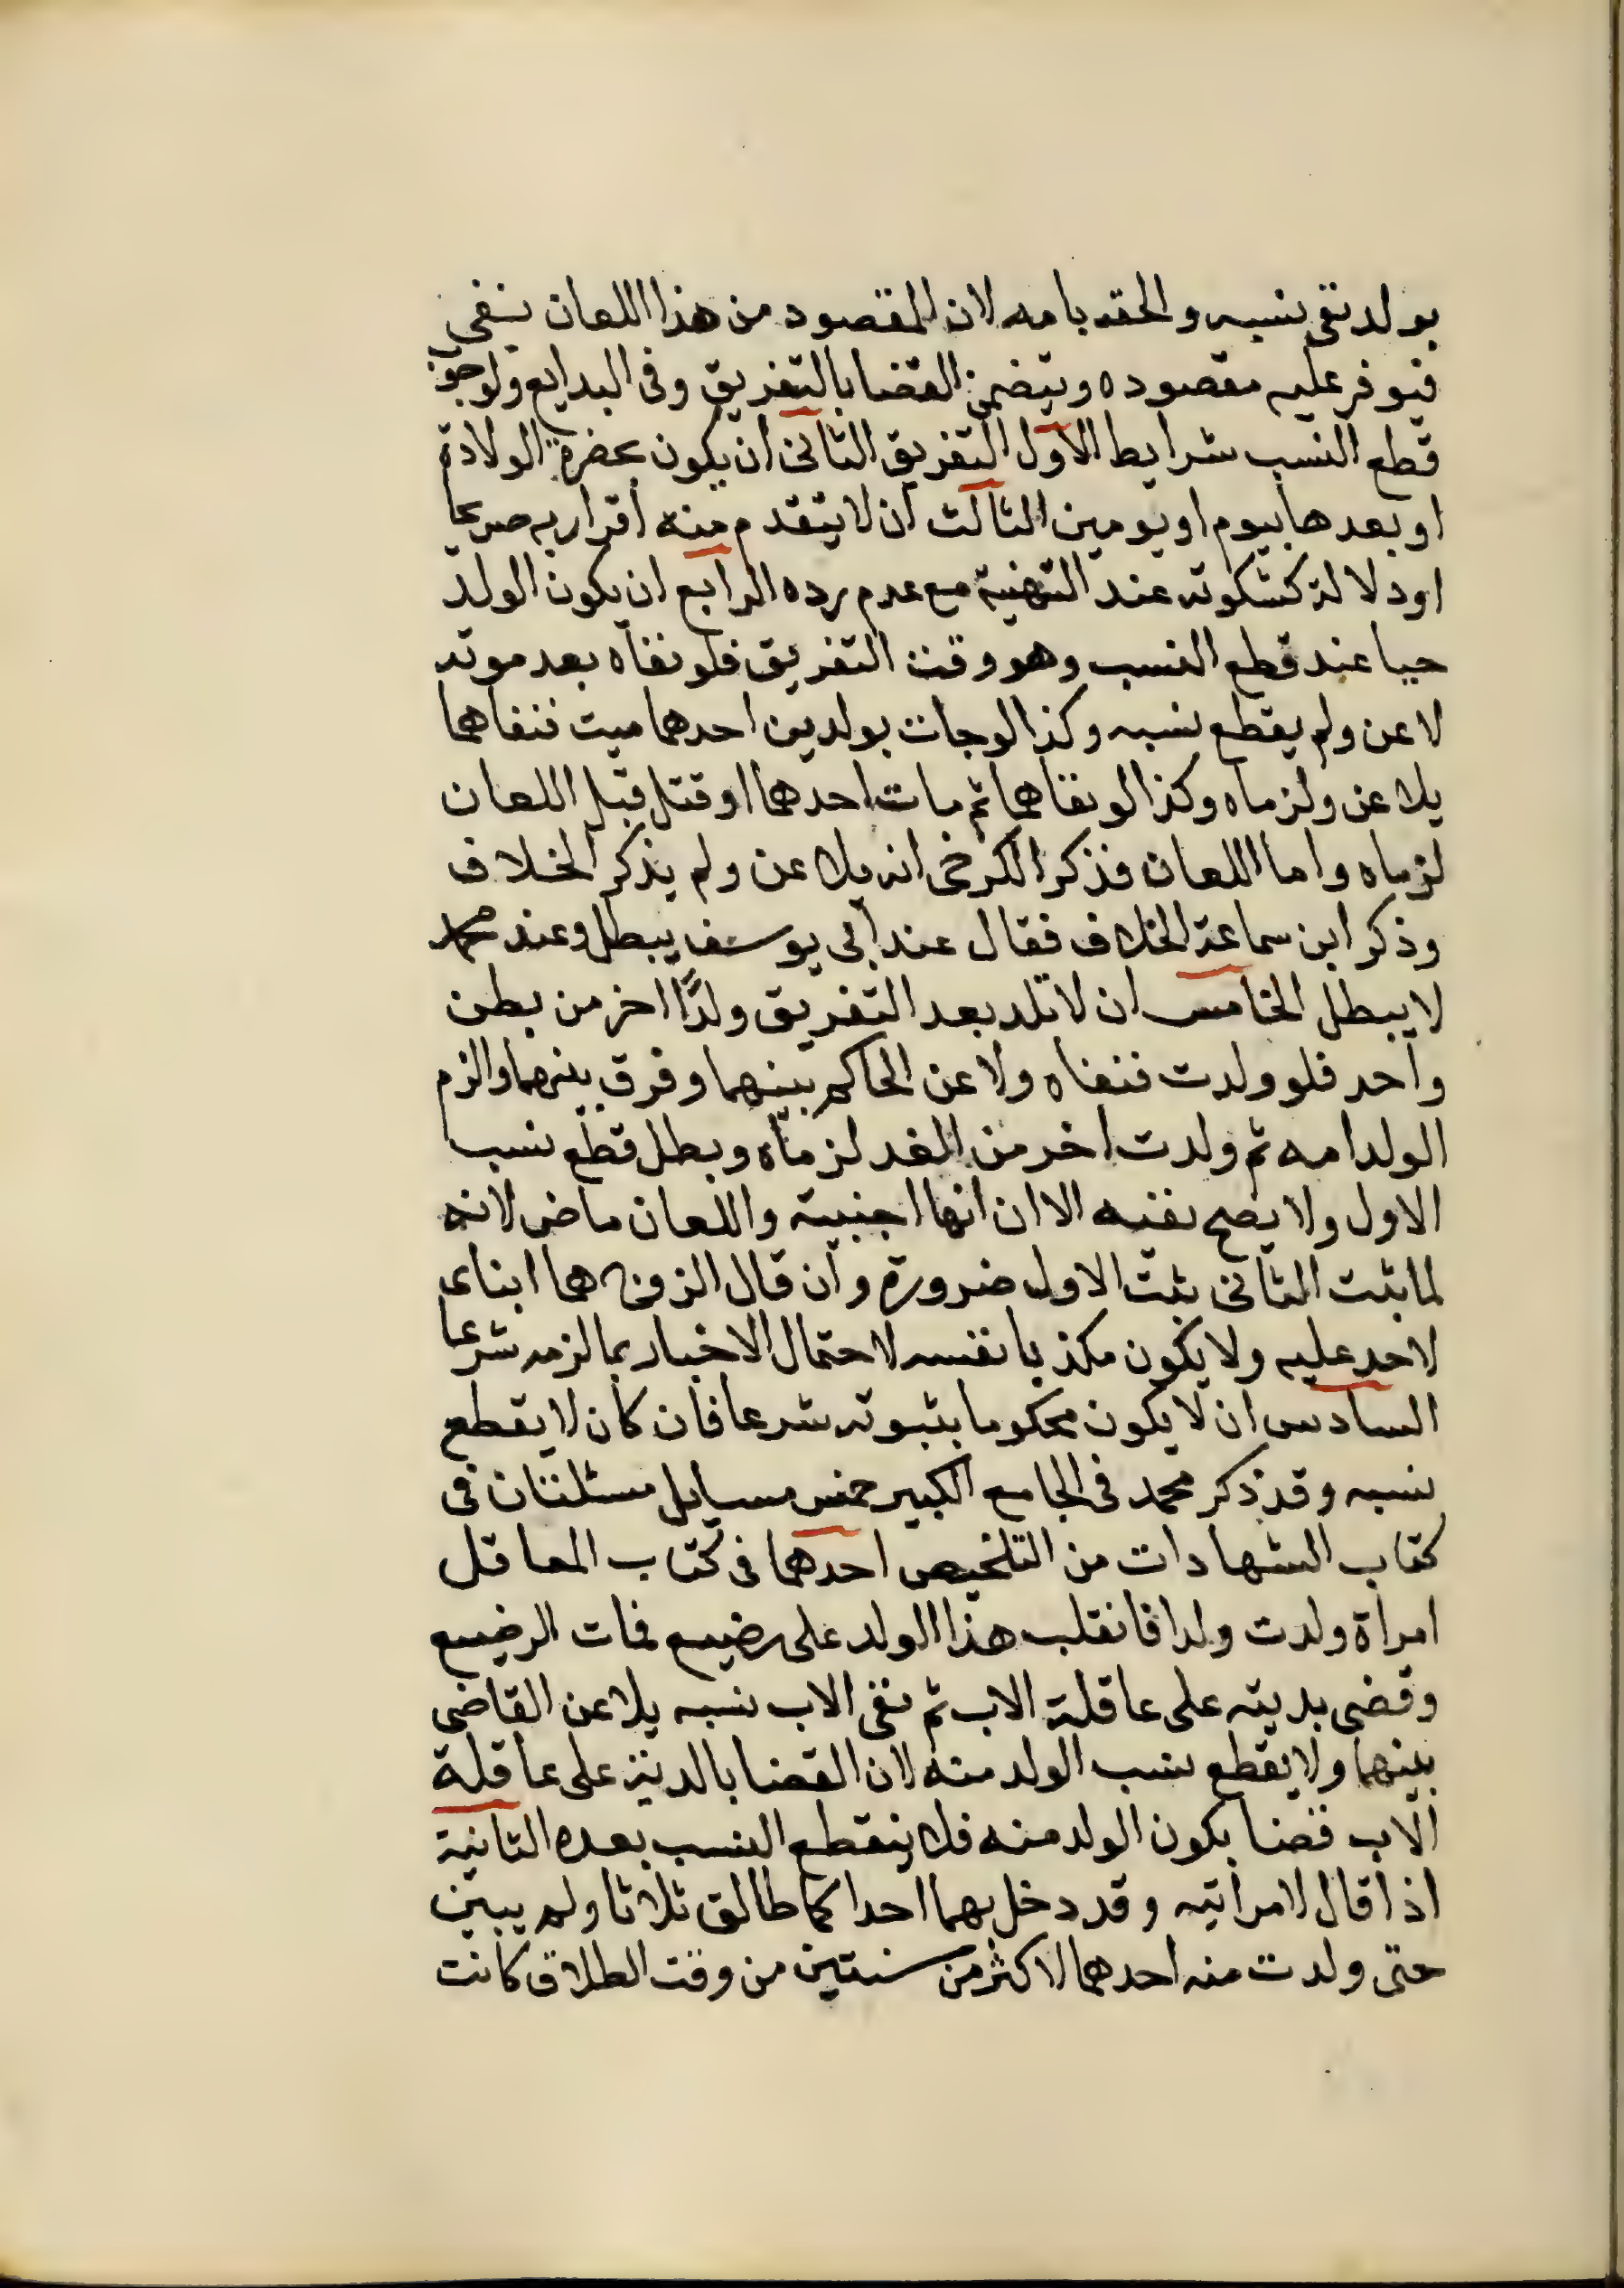 بولد نفى نسبه والحقه بامه لان المقصود من هذا اللعان نفى
فيوفر عليه مقصوده ويتضمن القضا بالتفريق وفى البدايع ولوجوب
قطع النسب شرايط الاول التفريق الثانى ان يكون بحضرة الولادة
او بعدها بيوم او يومين الثالث ان لا يتقدم منه اقرار به صريحا
او دلالة كسكوته عند التهنية مع عدم رده الرابع ان يكون الولد
حيا عند قطع النسب وهو وقت التفريق فلو نفاه بعد موته
لاعن ولم يقطع نسبه وكذا لو جات بولدين احدهما ميت فنفاهما
يلاعن ولزماه وكذا لو نفاهما ثم مات احدهما او قتل قبل اللعان
لزماه واما اللعان فذكر الكرخى انه يلاعن ولم يذكر الخلاف
وذكر ابن سماعة الخلاف فقال عند ابى يوسف يبطل وعند محمد
لا يبطل الخامس ان لا تلد بعد التفريق ولدًا اخر من بطن
واحد فلو ولدت فنفاه ولاعن الحاكم بينهما وفرق بينهما والزم
الولد امه ثم ولدت اخر من الغد لزماه وبطل قطع نسب
الاول ولا يصح نفيه الا ان انها اجنبية واللعان ماض لانه
لما ثبت الثانى ثبت الاول ضرورة وان قال الزوج هما ابناى
لا حد عليه ولا يكون مكذبا نفسه لاحتمال الاخبار بما لزمه شرعا
السادس ان لا يكون محكوما بثبوته شرعا فان كان لا يقطع
نسبه وقد ذكر محمد فى الجامع الكبير خمس مسايل مسئلتان فى
كتاب الشهادات من التلخيص احدهما فى كتاب المعاقل
امراة ولدت ولدا فانقلب هذا الولد على رضيع فمات الرضيع
وقضى بديته على عاقلة الاب ثم نفى الاب نسبه يلاعن القاضى
بينهما ولا يقطع نسب الولد منه لان القضا بالدية على عاقلة
الاب قضا بكون الولد منه فلا ينقطع النسب بعده الثانية
اذا قال لامراتيه وقد دخل بهما احداكما طالق ثلاثا ولم يبين
حتى ولدت منه احدهما لاكثر من سنتين من وقت الطلاق كانت